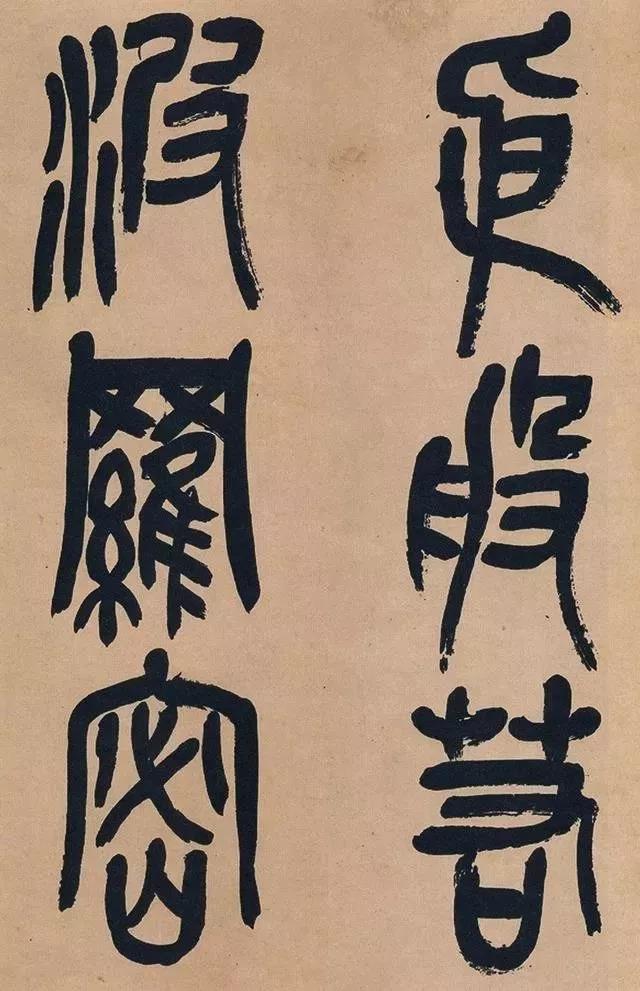 真般若
波羅密